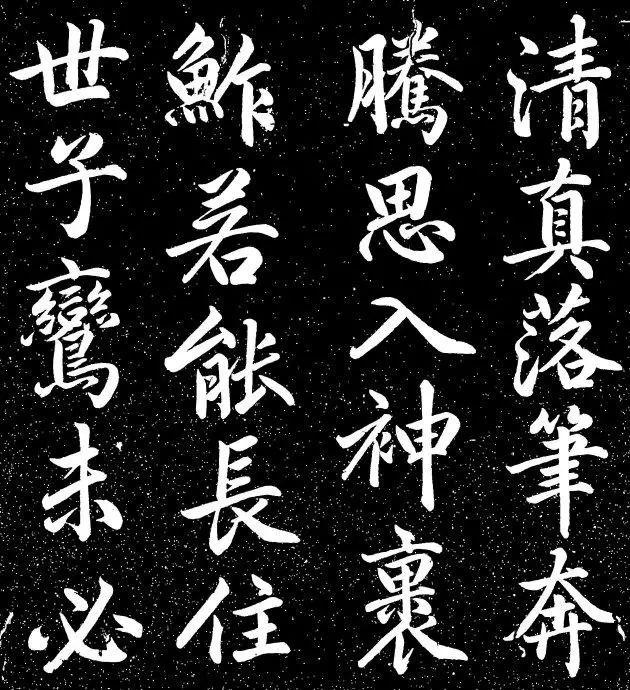 清真落筆奔
騰思入神裏
鮓若能長住
世子鸞未必